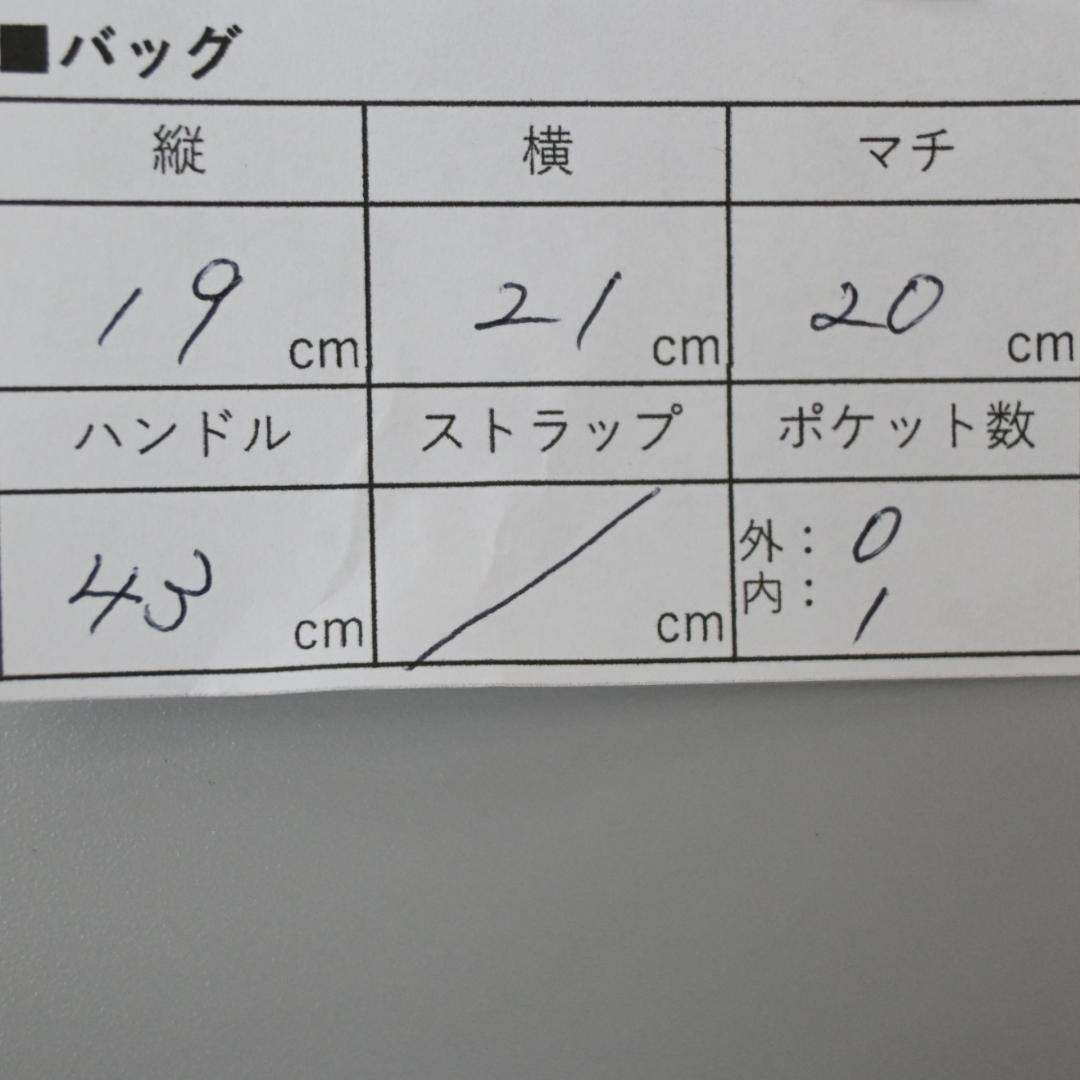 ■バッグ
縦 横 マチ
19 cm 21 cm 20 cm
ハンドル ストラップ ポケット数
43 cm / cm 外： 0
内： 1